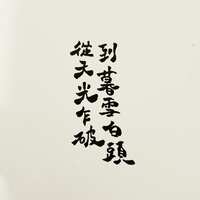 從天光乍破
到暮雪白頭